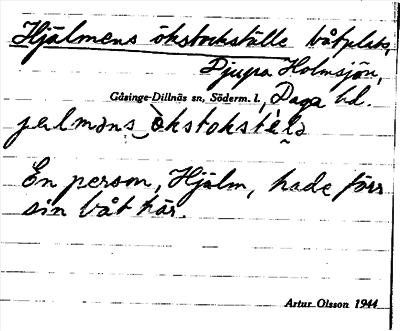 Hjälmens ökstockställe båtplats,
Djupa Holmsjön,
Gåsinge-Dillnäs sn, Söderm. l., Daga hd.
jelmǝns ökstokstelǝ
En person, Hjälm, hade förr
sin båt här.
Artur Olsson 1944